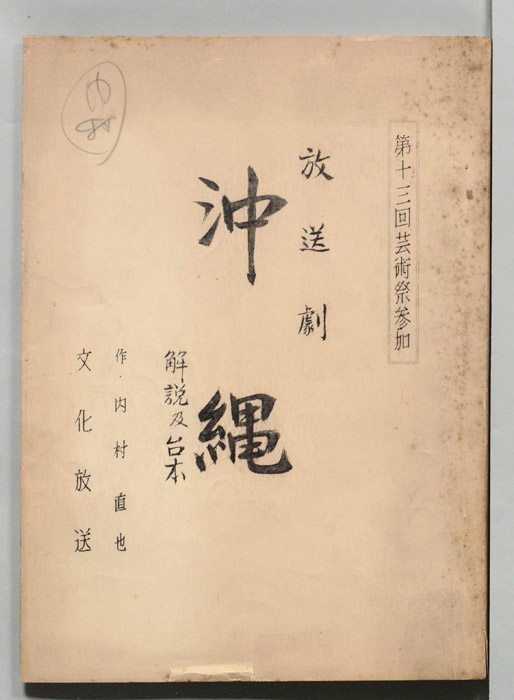 第十三回芸術祭参加
放送劇
沖縄
解説及台本
作・内村直也
文化放送